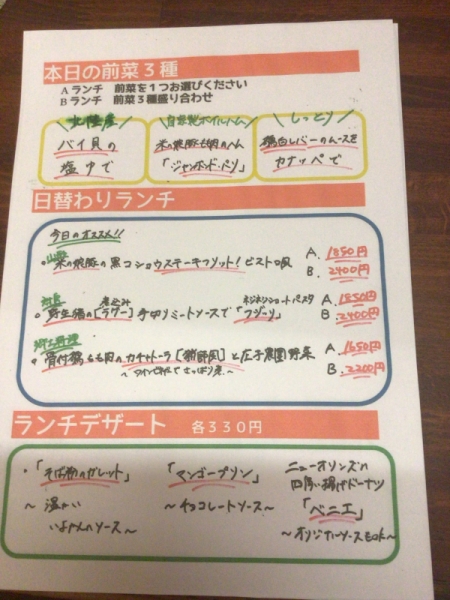 本日の前菜3種
Aランチ 前菜を1つお選びください
Bランチ 前菜3種盛り合わせ
北陸産
バイ貝の
塩ゆで
自家製ボイルハム
米の娘豚もも肉のハム
「ジャンボンドパリ」
しっとり
鶏白レバーのムースを
カナッペで
日替わりランチ
今日のオススメ!!
米の娘豚の黒コショウステーキフリット!ビストロ風
A. 1850円
B. 2400円
野生猪の[ラグー]手切りミートソースで「フジッリ」
煮込み
ネジネジショートパスタ
A. 1850円
B. 2400円
郷土料理
骨付鶏もも肉のカチャトーラ[猟師風]と庄子農園野菜
A. 1650円
B. 2200円
ランチデザート 各330円
「そば粉のガレット」
～温かい
いよかんのソース～
「マンゴープリン」
～チョコレートソース～
ニューオリンズの
四角い揚げドーナツ
「ベニエ」